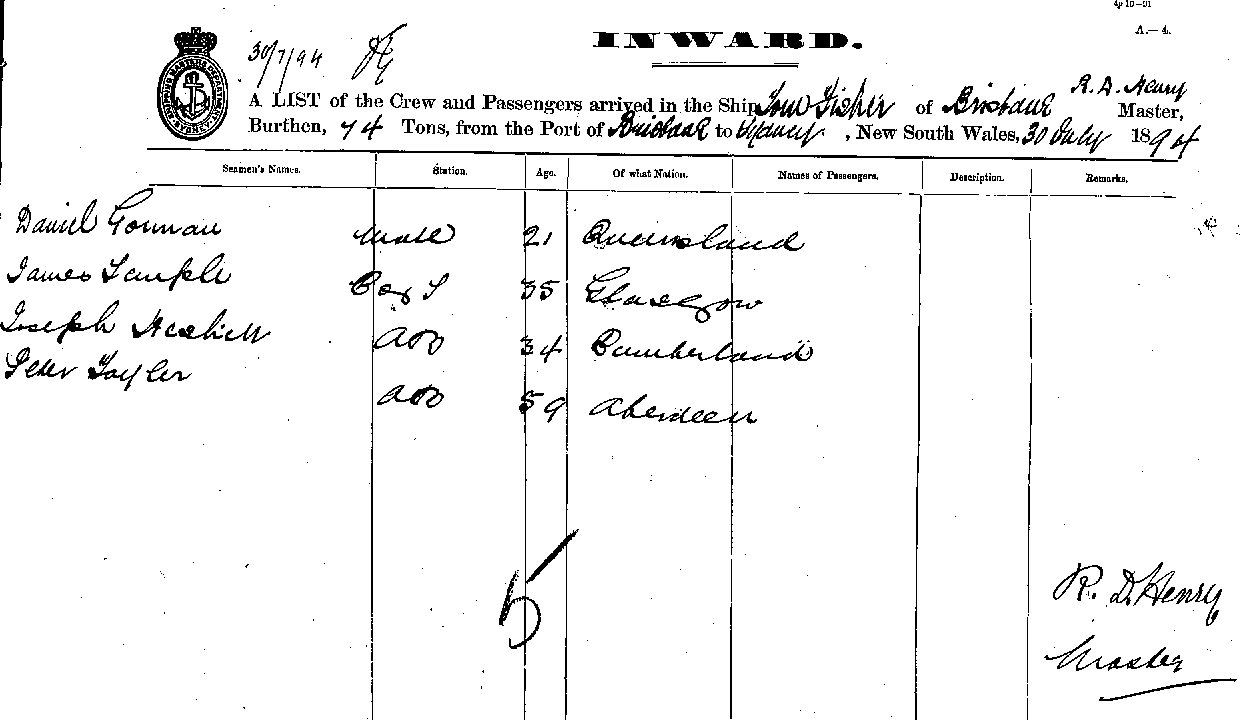 4p 10—91
A.—4.
INWARD.
30/7/94
R. D. Henry
A LIST of the Crew and Passengers arrived in the Ship Tom Fisher of Brisbane Master,
Burthen, 74 Tons, from the Port of Brisbane to Sydney, New South Wales, 30 July 1894
Seamen's Names. Station. Age. Of what Nation. Names of Passengers. Description. Remarks.
Daniel Gorman Mate 21 Queensland
James Temple 35 Glasgow
Joseph Nesbitt AB 34 Cumberland
Peter Tayler AB 59 Aberdeen
5
R. D. Henry
Master